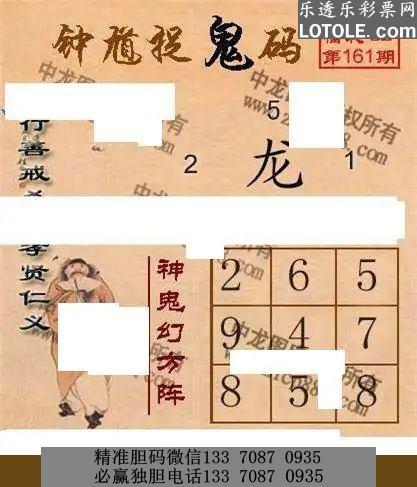 乐透乐彩票网
LOTOLE.COM
钟馗捉鬼码
第161期
行善戒
孝贤仁义
5
2 龙 1
神鬼幻方阵
2 6 5
9 4 7
8 5 8
精准胆码微信133 7087 0935
必赢独胆电话133 7087 0935